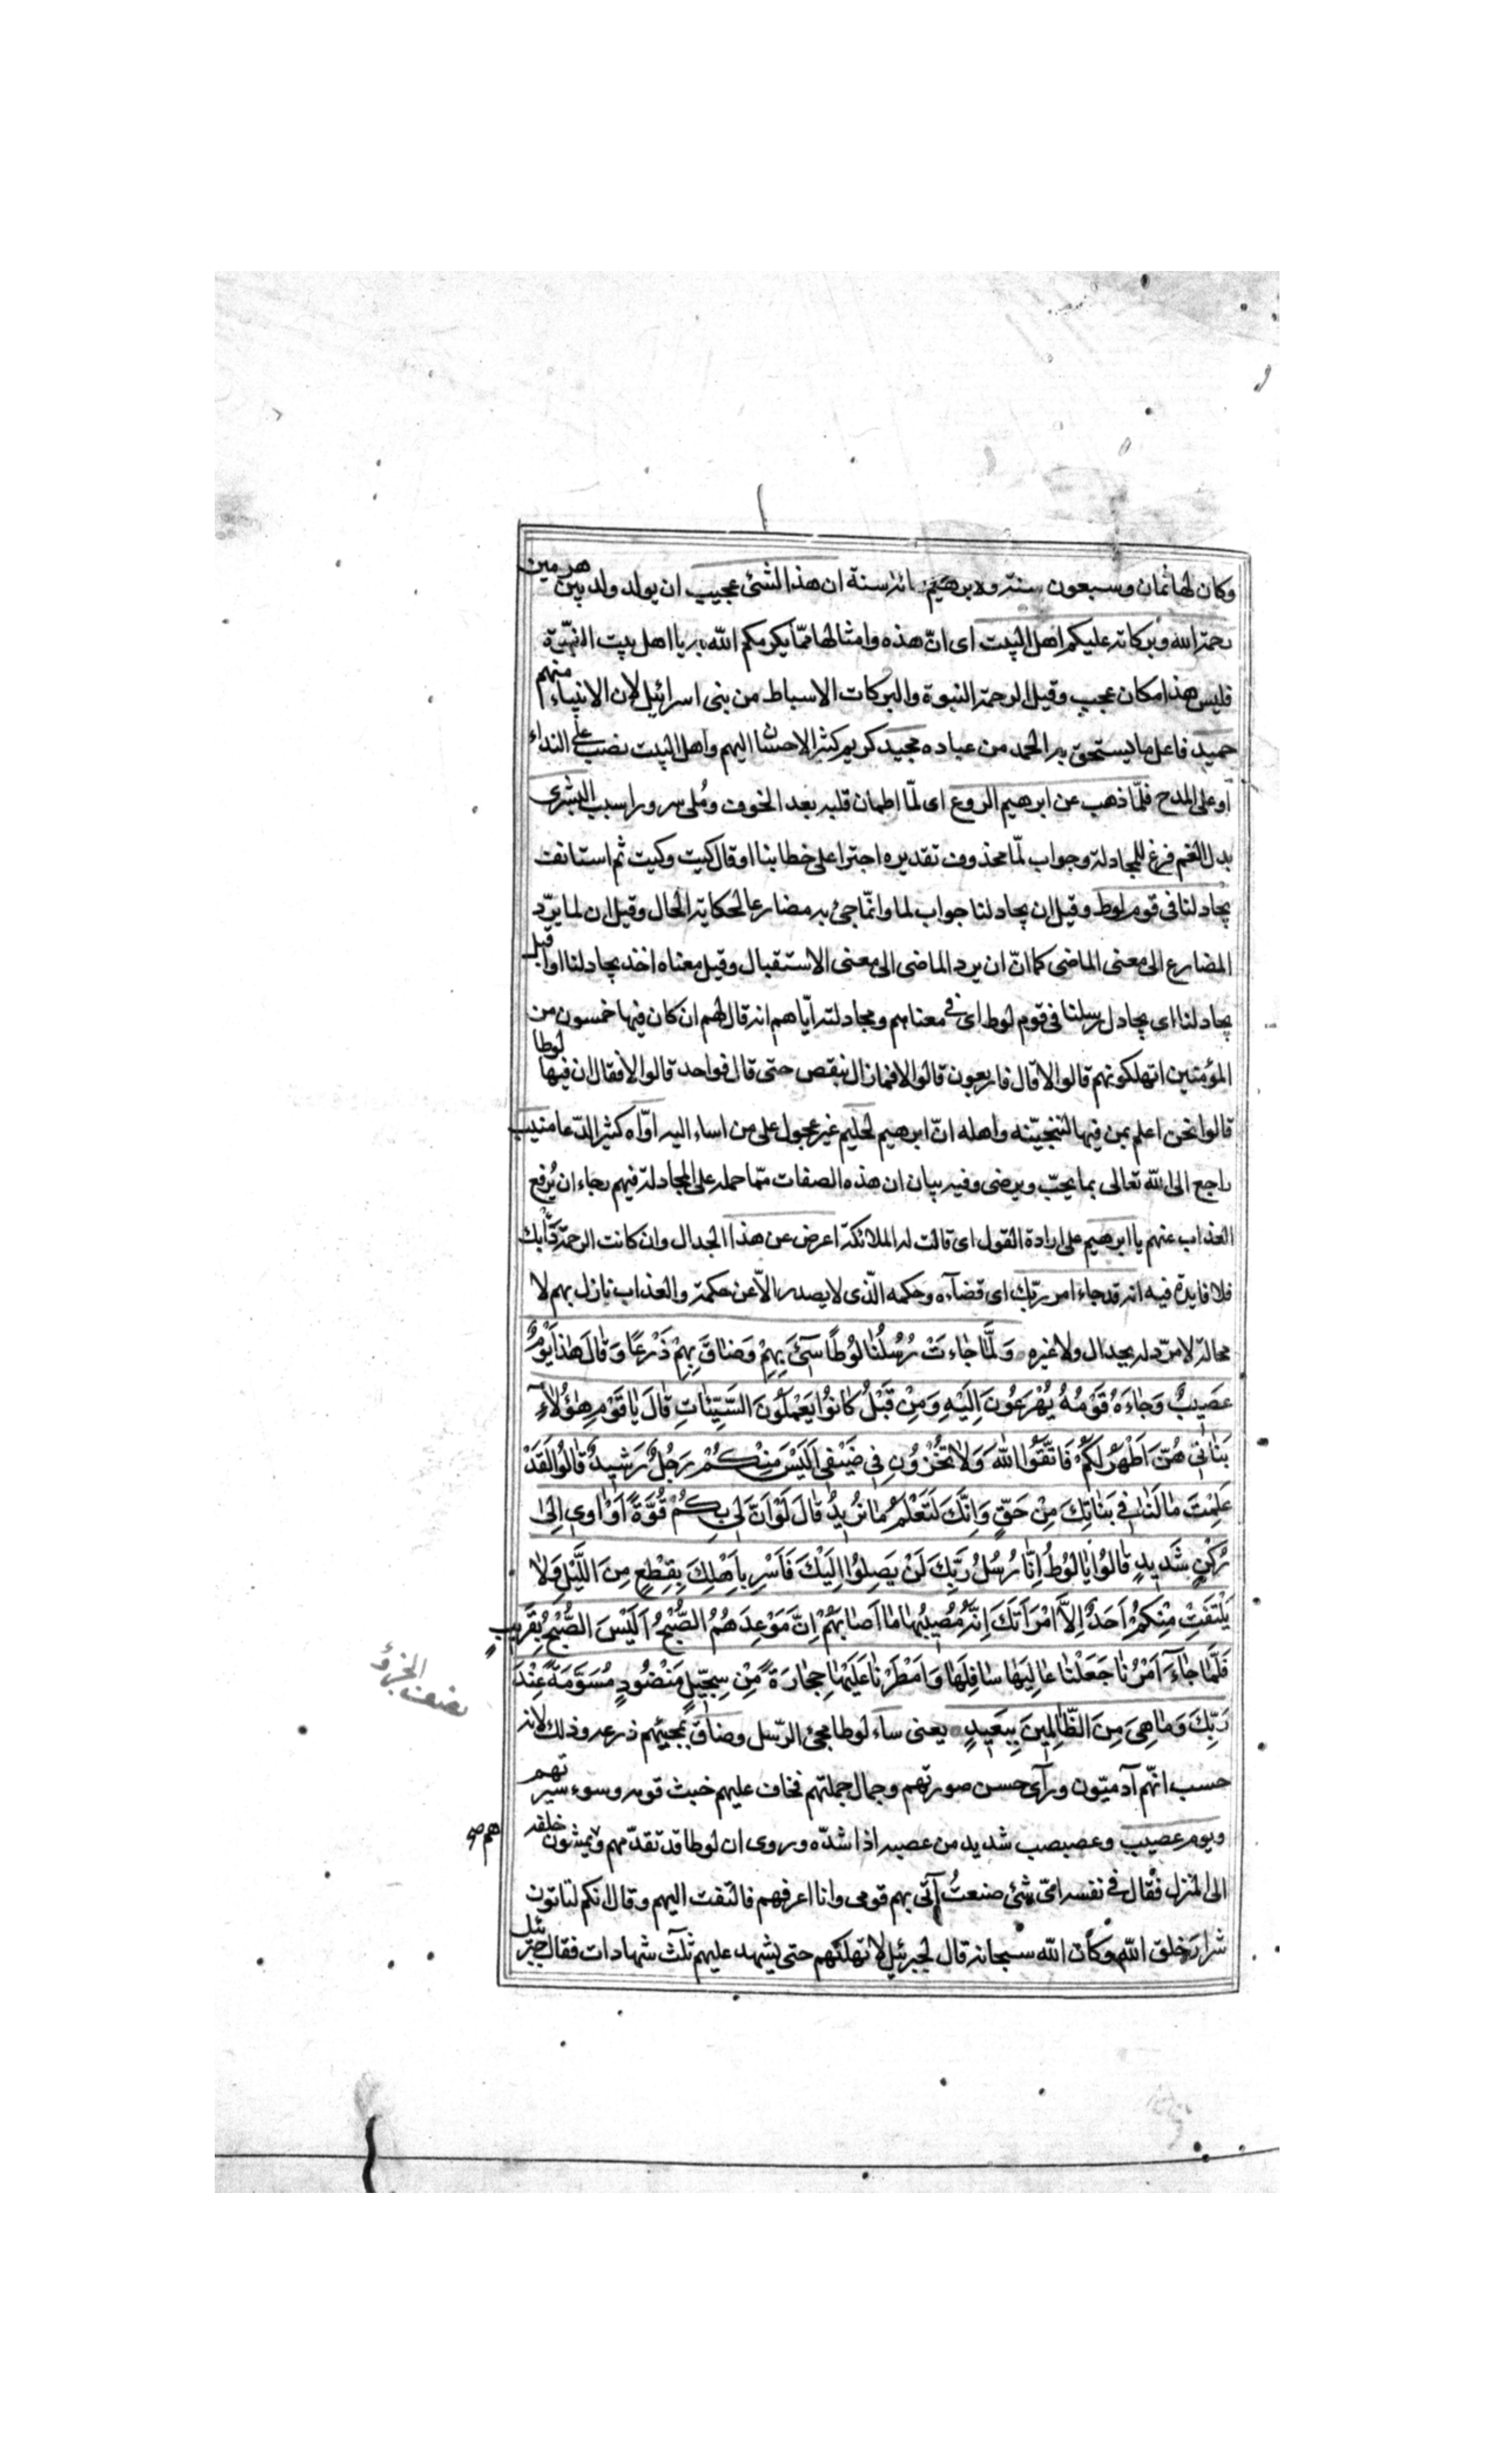 وكان لها ثمان وسبعون سنة ولابرهيم مائة سنة ان هذا الشئ عجيب ان يولد ولد بين هرمين
رحمة الله وبركاته عليكم اهل البيت اى انّ هذه وامثالها ممّا يكرمكم الله به يا اهل بيت النبوّة
فليس هذا مكان عجب وقيل الرحمة النبوة والبركات الاسباط من بنى اسرائيل لان الانبياء منهم
حميد فاعل ما يستحق به الحمد من عباده مجيد كريم كثير الاحسان اليهم واهل البيت نصب على النداء
او على المدح فلمّا ذهب عن ابرهيم الروع اى لمّا اطمان قلبه بعد الخوف ومُلى سرورا بسبب البشرى
بدل الغم فرغ للمجادلة وجواب لمّا محذوف تقديره اجترا على خطابنا او قال كيت وكيت ثم استانف
يجادلنا فى قوم لوط وقيل ان يجادلنا جواب لما وانّما جئ به مضارعا لحكاية الحال وقيل ان لما يردّ
المضارع الى معنى الماضى كما انّ ان يرد الماضى الى معنى الاستقبال وقيل معناه اخذ يجادلنا او اقبل
يجادلنا اى يجادل رسلنا فى قوم لوط اى فى معناهم ومجادلته ايّاهم انه قال لهم ان كان فيها خمسون من
المؤمنين اتهلكونهم قالوا لا قال فاربعون قالوا لا فما زال ينقص حتى قال فواحد قالوا لا فقال ان فيها لوطا
قالوا نحن اعلم بمن فيها لننجينّه واهله انّ ابرهيم لحليم غير عجول على من اساء اليه اوّاه كثير الدّعا منيب
راجع الى الله تعالى بما يحبّ ويرضى وفيه بيان ان هذه الصفات ممّا حمله على المجادلة فيهم رجاء ان يُرفع
العذاب عنهم يا ابرهيم على ارادة القول اى قالت له الملائكة اعرض عن هذا الجدال وان كانت الرحمة دأبك
فلا فايدة فيه انه قد جاء امر ربّك اى قضآءه وحكمه الّذى لا يصدر الّا عن حكمة والعذاب نازل بهم لا
محالة لا مردّ له بجدال ولا غيره وَلَمَّا جَاءَتْ رُسُلُنَا لُوطًا سِئَ بِهِمْ وَضَاقَ بِهِمْ ذَرْعًا وَقَالَ هٰذَا يَوْمٌ
عَصِيبٌ وَجَاءَهُ قَوْمُهُ يُهْرَعُونَ اِلَيْهِ وَمِنْ قَبْلُ كَانُوا يَعْمَلُونَ السَّيِّئَاتِ قَالَ يَا قَوْمِ هٰؤُلَاءِ
بَنَاتِى هُنَّ اَطْهَرُ لَكُمْ فَاتَّقُوا اللهَ وَلَا تُخْزُونِ فِى ضَيْفِى اَلَيْسَ مِنْكُمْ رَجُلٌ رَشِيدٌ قَالُوا لَقَدْ
عَلِمْتَ مَا لَنَا فِى بَنَاتِكَ مِنْ حَقٍّ وَاِنَّكَ لَتَعْلَمُ مَا نُرِيدُ قَالَ لَوْ اَنَّ لِى بِكُمْ قُوَّةً اَوْ اٰوِى اِلٰى
رُكْنٍ شَدِيدٍ قَالُوا يَا لُوطُ اِنَّا رُسُلُ رَبِّكَ لَنْ يَصِلُوا اِلَيْكَ فَاَسْرِ بِاَهْلِكَ بِقِطْعٍ مِنَ اللَّيْلِ وَلَا
يَلْتَفِتْ مِنْكُمْ اَحَدٌ اِلَّا امْرَاَتَكَ اِنَّهُ مُصِيبُهَا مَا اَصَابَهُمْ اِنَّ مَوْعِدَهُمُ الصُّبْحُ اَلَيْسَ الصُّبْحُ بِقَرِيبٍ
فَلَمَّا جَاءَ اَمْرُنَا جَعَلْنَا عَالِيَهَا سَافِلَهَا وَاَمْطَرْنَا عَلَيْهَا حِجَارَةً مِنْ سِجِّيلٍ مَنْضُودٍ مُسَوَّمَةً عِنْدَ
رَبِّكَ وَمَا هِىَ مِنَ الظَّالِمِينَ بِبَعِيدٍ يعنى ساء لوطا مجئ الرّسل وضاق بمجيئهم ذرعه وذلك لانه
حسب انّهم آدميّون ورآى حسن صورتهم وجمال جملتهم فخاف عليهم خبث قومه وسوء سيرتهم
ويوم عصيب وعصبصب شديد من عصبه اذا شدّه وروى ان لوطا قد تقدّمهم ويمشون خلفه
هم صح
الى المنزل فقال فى نفسه اىّ شئ صنعتُ آتى بهم قومى وانا اعرفهم فالتفت اليهم وقال انكم لتاتون
شرارَ خلق الله وكان الله سبحانه قال لجبرئيل لا تهلكهم حتى يشهد عليهم ثلث شهادات فقال جبرئيل
نصف الجزؤ